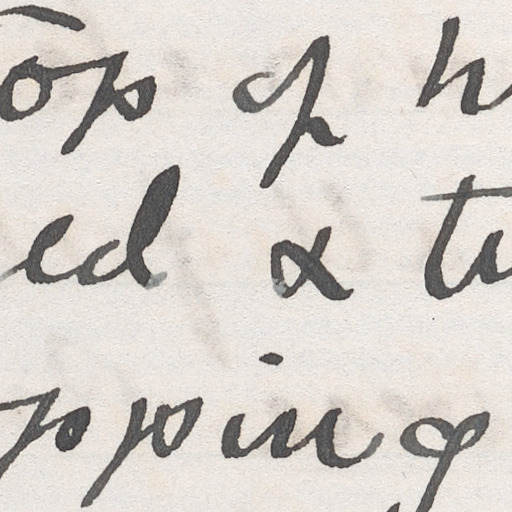 Top of h
ed & tu
pping